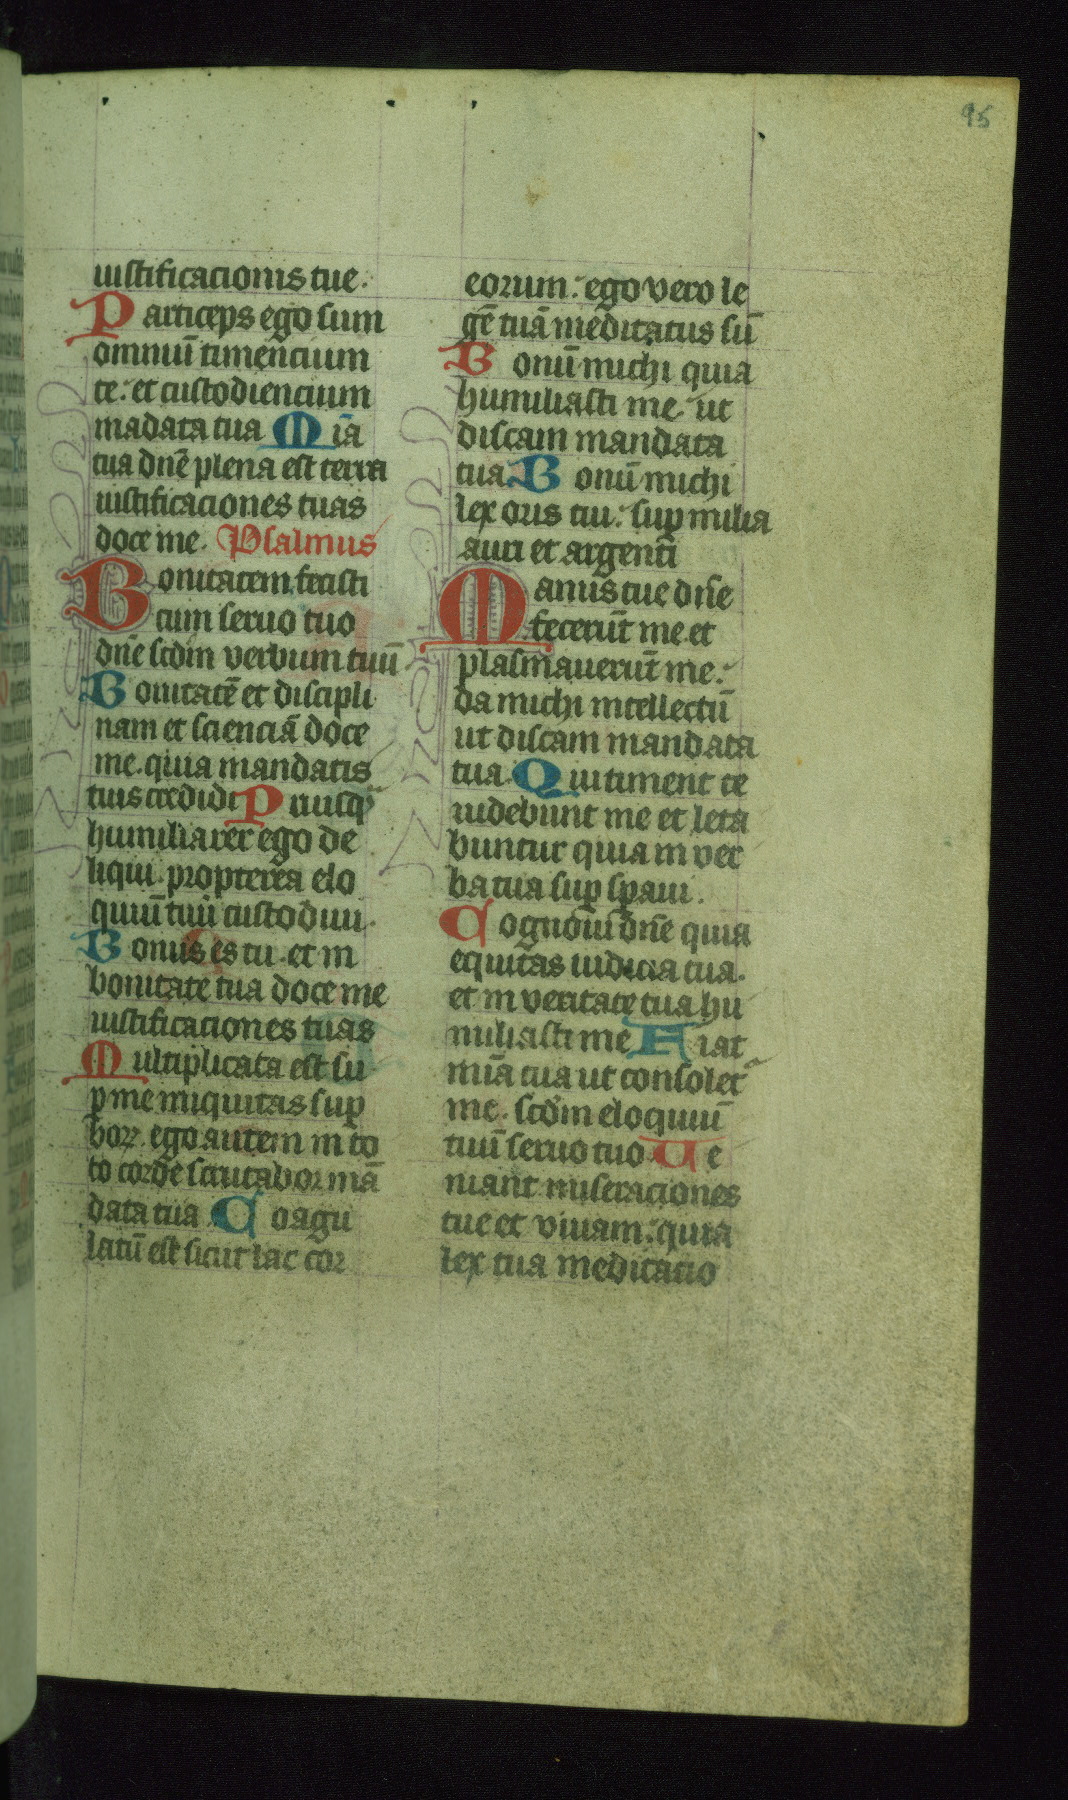 95
iustificacionis tue.
Particeps ego sum
omniū timencium
te: et custodiencium
madata tua Mīa
tua dnē plena est terra
iustificaciones tuas
doce me. Psalmus
Bonitatem fecisti
cum seruo tuo
dnē scdm verbum tuū
Bonitatē et discipli
nam et scienciā doce
me. quia mandatis
tuis credidi Priusq̄
humiliarer ego de
liqui. propterea elo
quiū tuū custodiui.
Bonus es tu. et in
bonitate tua doce me
iustificaciones tuas
Multiplicata est su
p me iniquitas sup
boꝝ. ego autem in to
to corde scrutabor mā
data tua Coagu
latū est sicut lac cor
eorum: ego vero le
gē tuā meditatus sū
Bonū michi quia
humiliasti me. ut
discam mandata
tua. Bonū michi
lex oris tui: sup milia
auri et argenti
Manus tue dn̄e
fecerūt me et
plasmauerūt me:
da michi intellectū
ut discam mandata
tua Qui timent te
uidebunt me et leta
buntur quia in ver
ba tua sup spaui.
Cognoui dn̄e quia
equitas iudicia tua.
et in veritate tua hu
miliasti me Fiat
mīa tua ut consolet᷑
me. scdm eloquiū
tuū seruo tuo Ue
niant miseraciones
tue et viuam: quia
lex tua meditatio